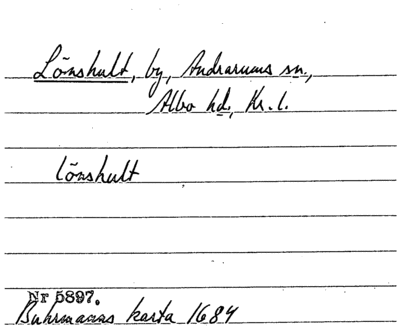 Lönshult, by, Andrarums sn.,
Albo hd., Kr. l.
lönshult
Nr 5897.
Buhrmanns karta 1684